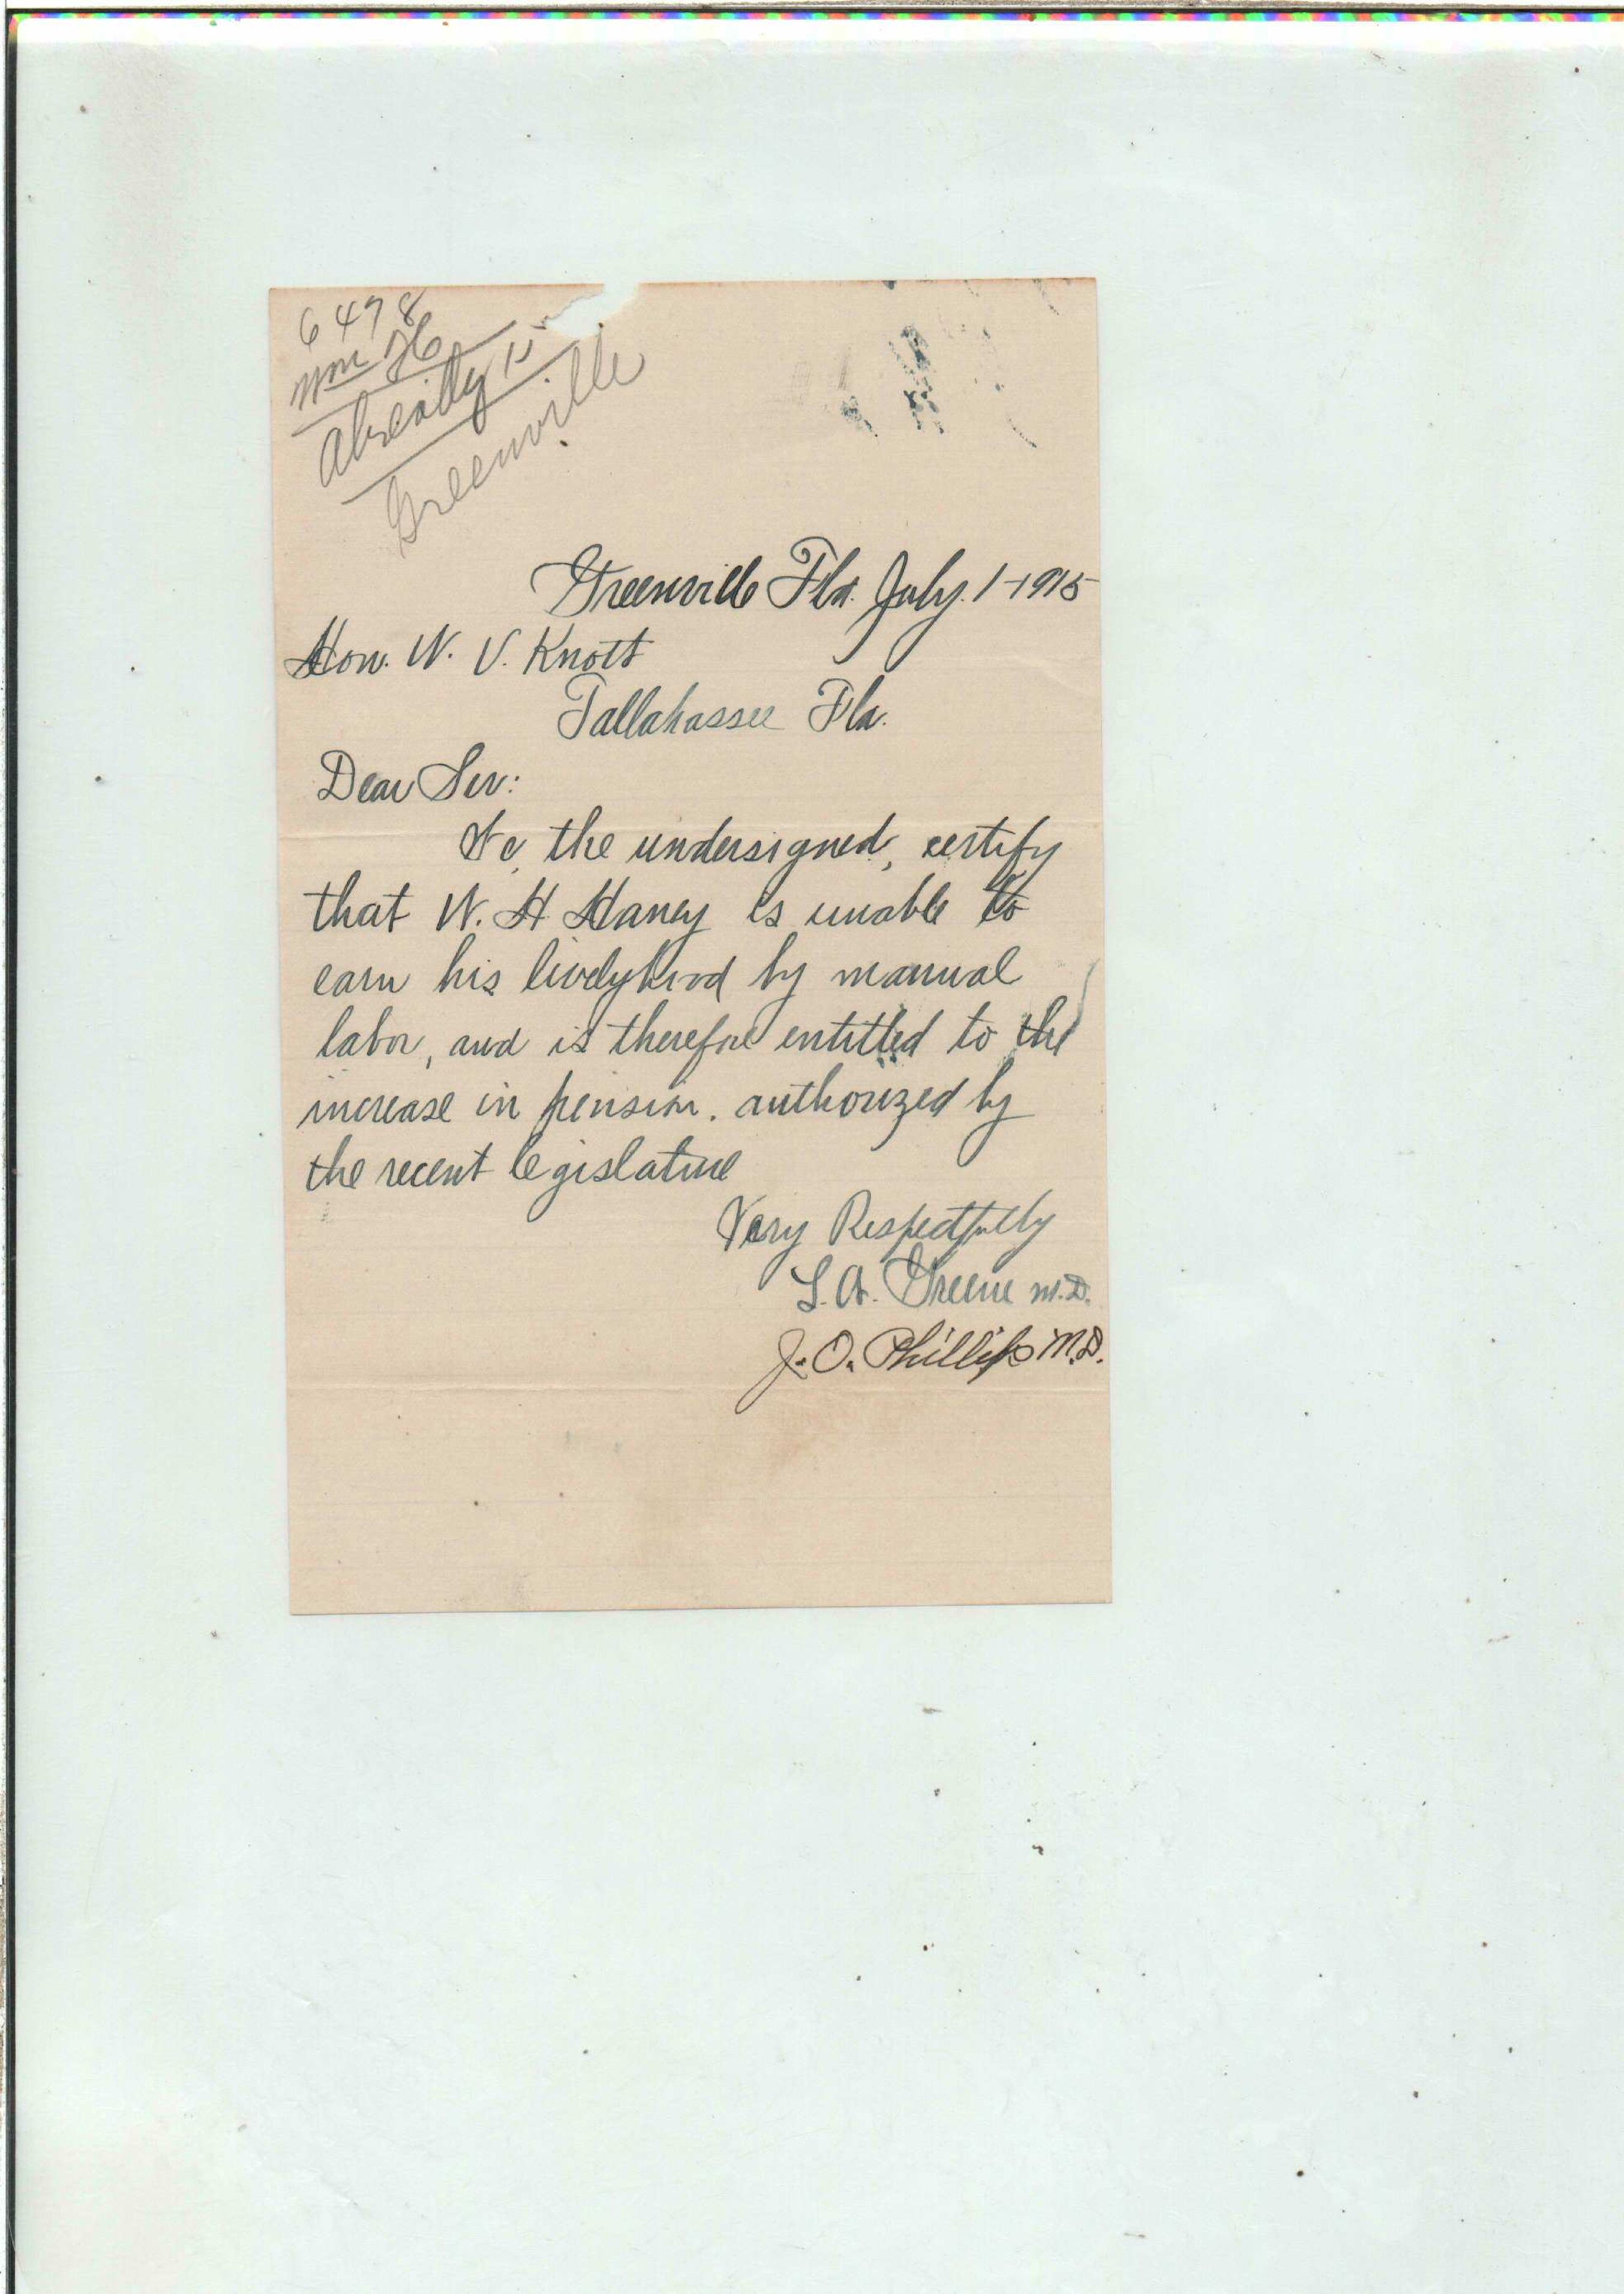 6478
Wm H
already 15
Greenville
Greenville Fla. July. 1-1915
Hon. W. V. Knott
Tallahassee Fla.
Dear Sir:
We, the undersigned, certify
that W. H Haney is unable to
earn his livelyhood by manual
labor, and is therefore entitled to the
increase in pension. authorized by
the recent legislature
Very Respectfully
L. A. Greene M.D.
J. O. Phillips M.D.